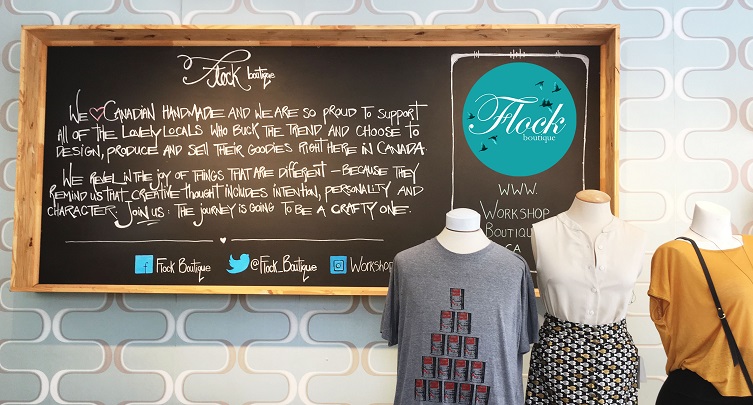 Flock boutique
WE CANADIAN HANDMADE AND WE ARE SO PROUD TO SUPPORT
ALL OF THE LOVELY LOCALS WHO BUCK THE TREND AND CHOOSE TO
DESIGN, PRODUCE AND SELL THEIR GOODIES RIGHT HERE IN CANADA.
WE REVEL IN THE JOY OF THINGS THAT ARE DIFFERENT – BECAUSE THEY
REMIND US THAT CREATIVE THOUGHT INCLUDES INTENTION, PERSONALITY AND
CHARACTER. JOIN US: THE JOURNEY IS GOING TO BE A CRAFTY ONE.
f Flock Boutique @Flock_Boutique Workshop
Flock
boutique
WWW.
WORKSHOP
BOUTIQUE
CA